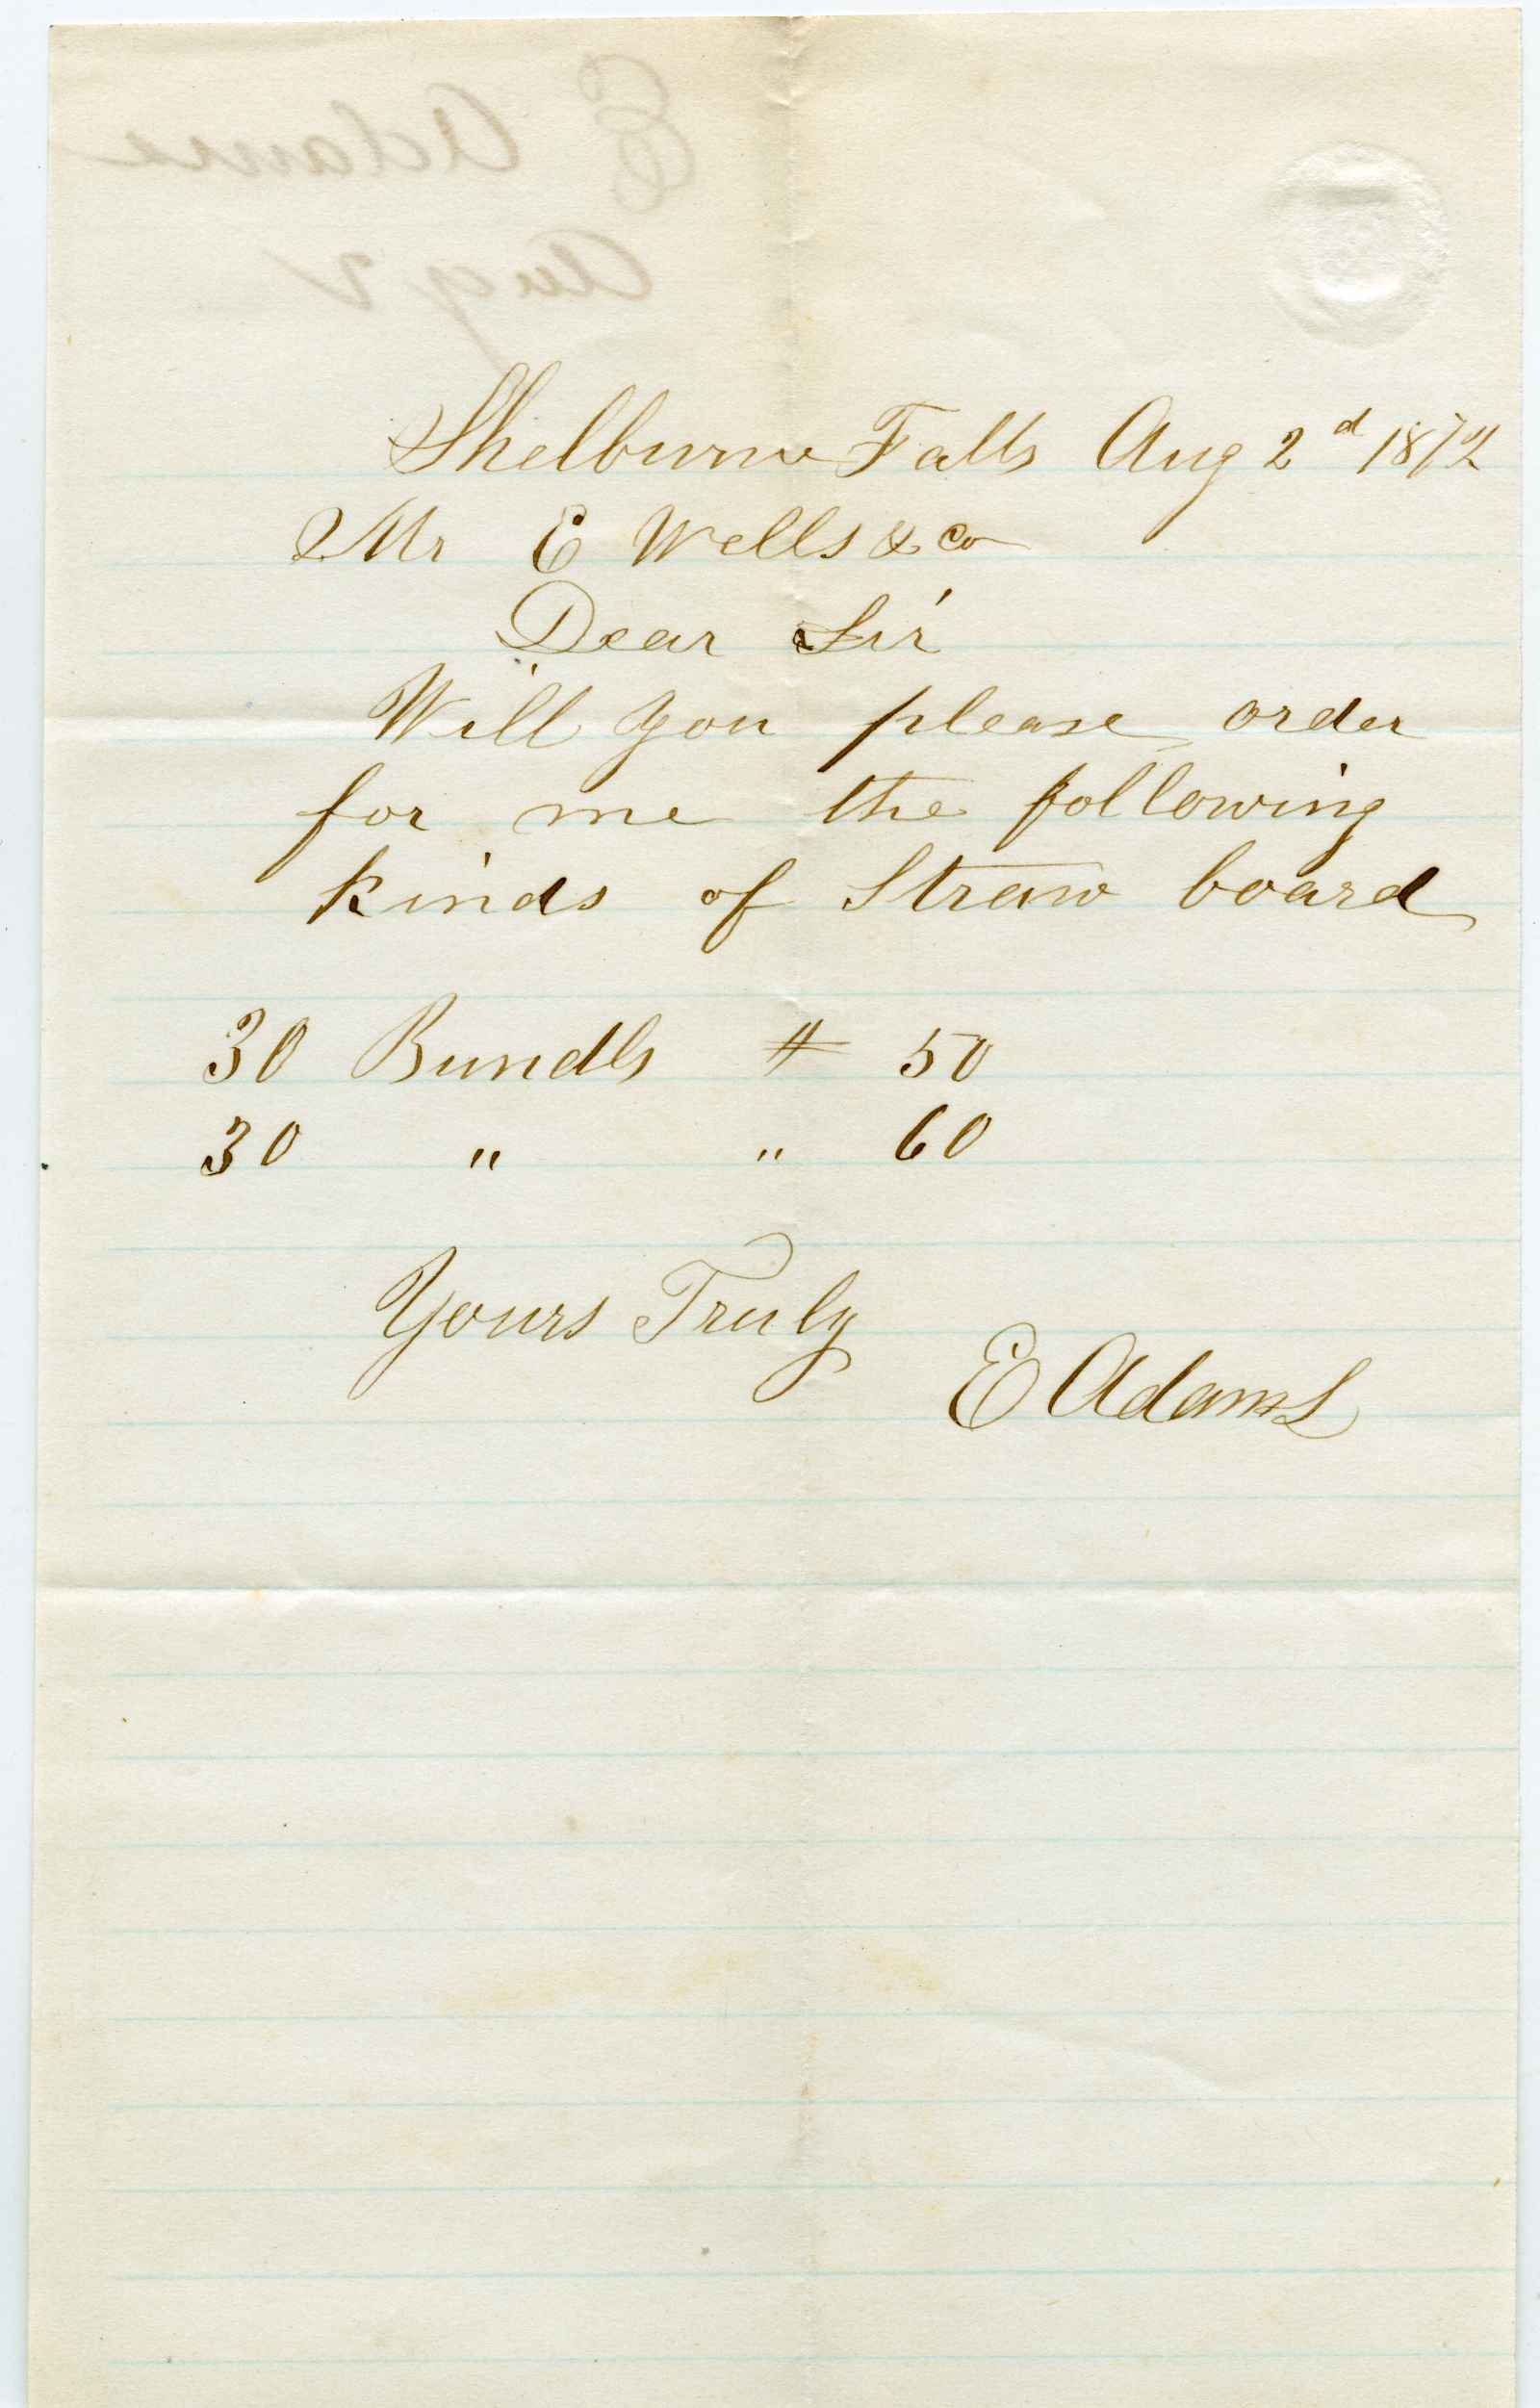 E Adams
Aug 2
Shelburne Falls Aug 2d 1872
Mr E Wells & Co
Dear Sir
Will you please order
for me the following
kinds of Straw board
30 Bundls # 50
30 " " 60
Yours Truly
E Adams